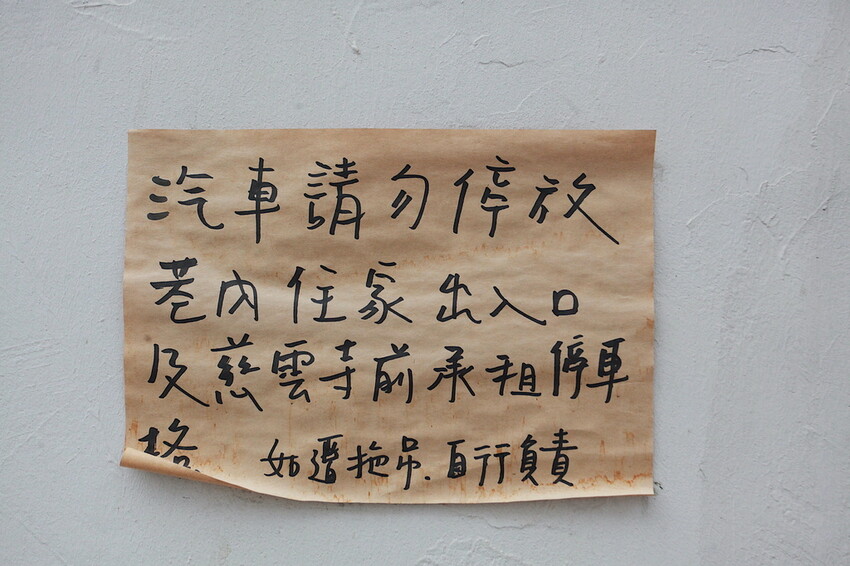 汽車請勿停放
巷內住家出入口
及慈雲寺前承租停車
格 如遭拖吊.自行負責